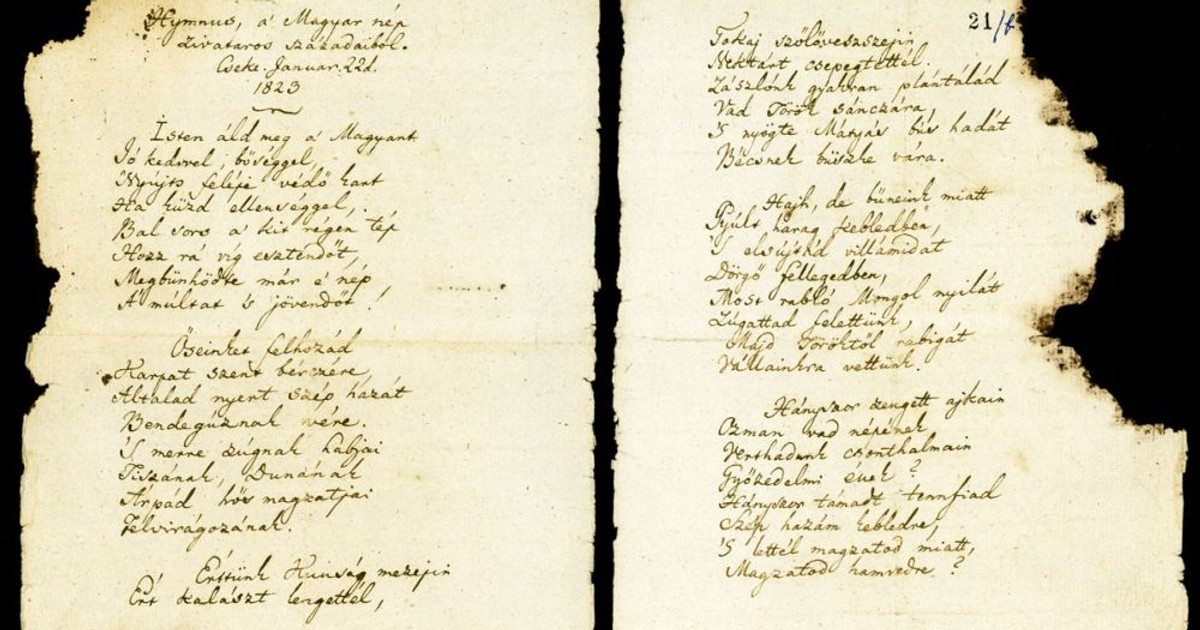 Hymnus, a' Magyar nép
Zivataros századaiból.
Cseke. Januar. 22d.
1823
Isten áld meg a' Magyart
Jó kedvvel, bőséggel,
Nyújts feléje védő kart
Ha küzd ellenséggel,
Bal sors a' kit régen tép
Hozz rá víg esztendőt,
Megbünhödte már e' nép
A' múltat 's jövendőt!
Őseinket felhozád
Kárpát szent bérczére,
Általad nyert szép hazát
Bendegúznak vére.
'S merre zúgnak habjai
Tiszának, Dunának
Árpád hős magzatjai
Felvirágozának.
Értünk Kunság mezejin
Ért kalászt lengettél,
21/b
Tokaj szőlővesszején
Nektárt csepegtettél.
Zászlónk gyakran plántálád
Vad Török sánczára,
'S nyögte Mátyás bús hadát
Bécsnek büszke vára.
Hajh, de bűneink miatt
Gyúlt harag kebledben,
'S elsújtád villámidat
Dörgő fellegedben,
Most rabló Mongol nyilát
Zúgattad felettünk,
Majd Töröktől rabigát
Vállainkra vettünk.
Hányszor zengett ajkain
Ozman vad népének
Vert hadunk csonthalmain
Győzedelmi ének?
Hányszor támadt tennfiad
Szép hazám kebledre,
'S lettél magzatod miatt,
Magzatod hamvedre?